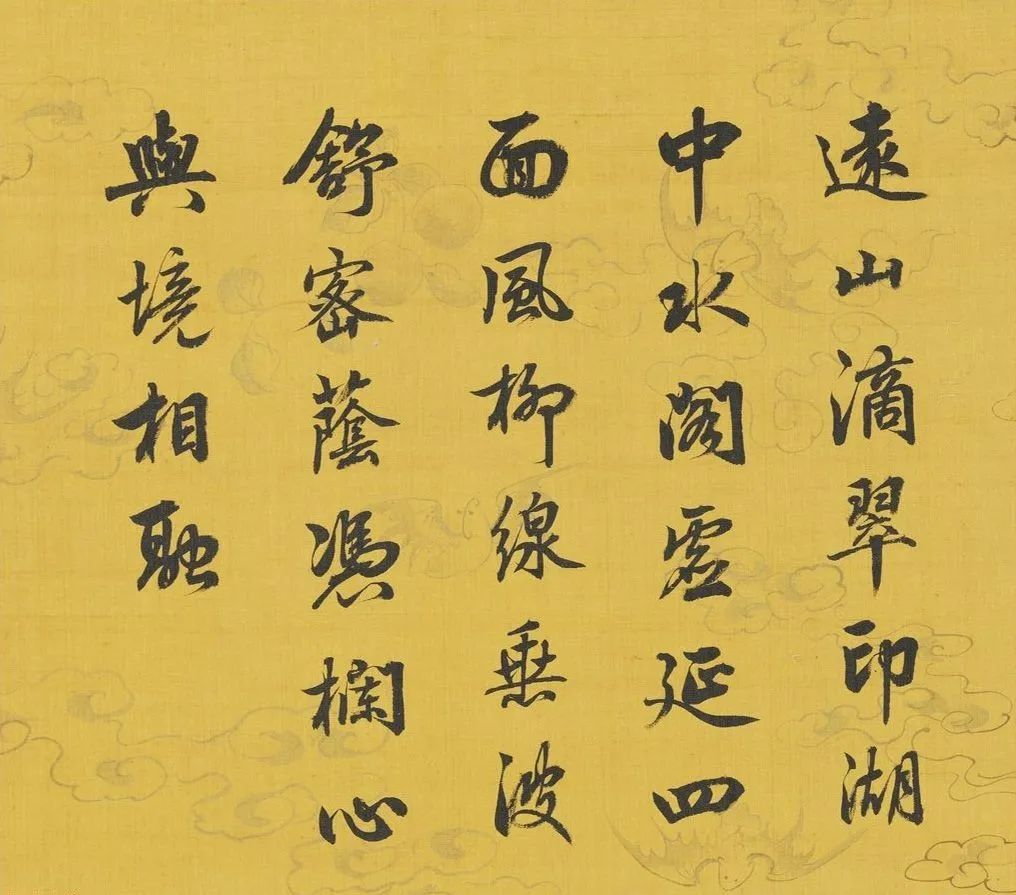 遠山滴翠印湖
中水閣虛延四
面風柳線垂波
舒密蔭憑欄心
與境相融